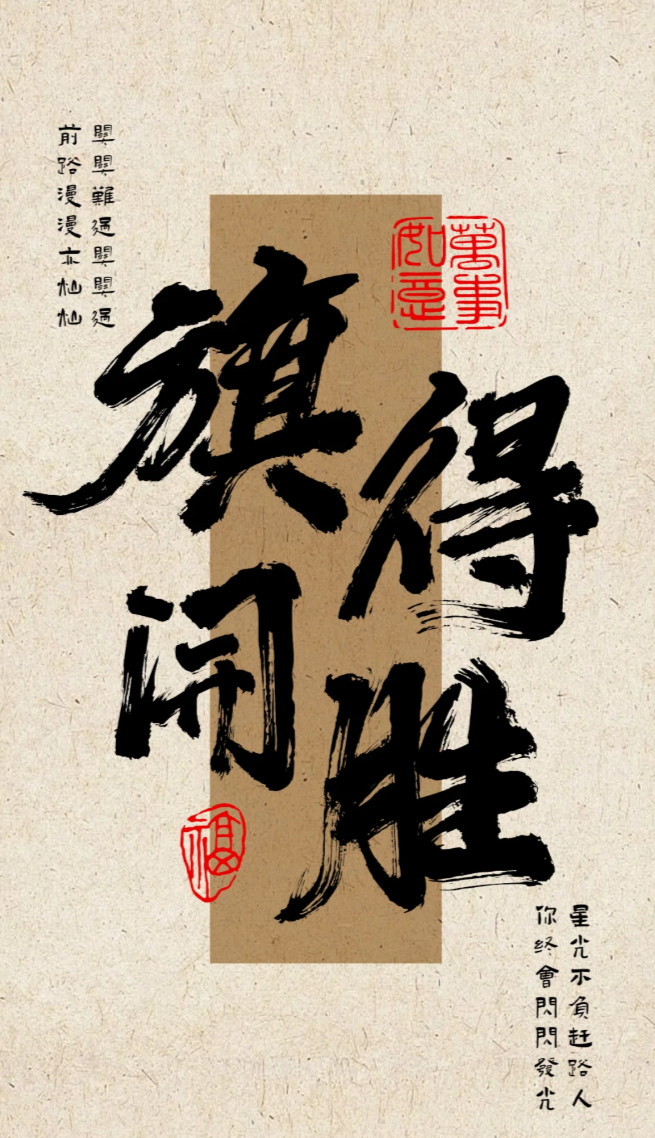 關關難過關關過
前路漫漫亦灿灿
萬事
如意
旗開
得胜
福
星光不負赶路人
你终會閃閃發光